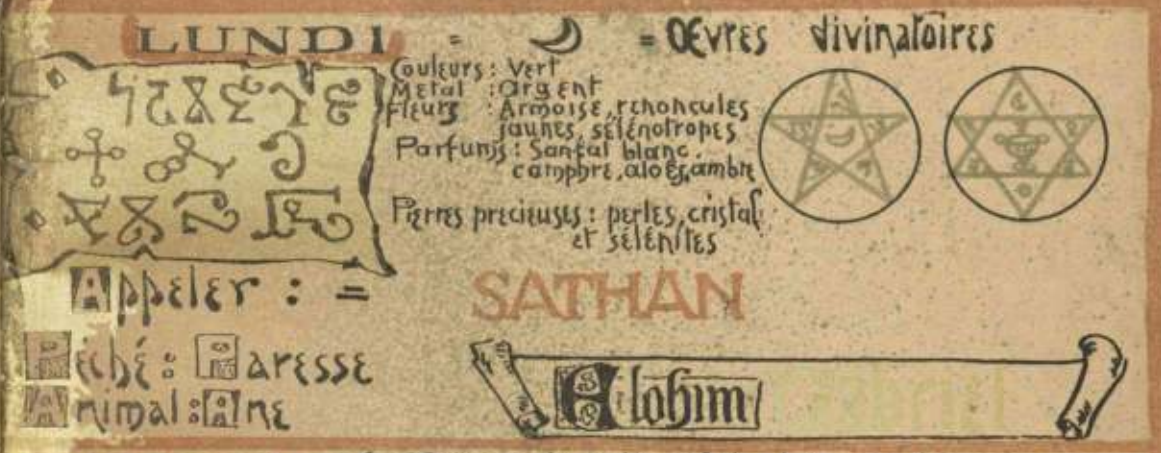 LUNDI = = Œvres divinatoires
Couleurs : Vert
Metal : argent
Fleurs : Armoise, renoncules
jaunes, sélénotropes
Parfums : Santal blanc,
camphre, aloès, ambre
Pierres precieuses : perles, cristal
et sélénites
Appeler : = SATHAN
Péché : Paresse
Animal : Ane
Elohim